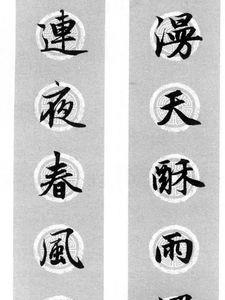 漫天酥雨
連夜春風